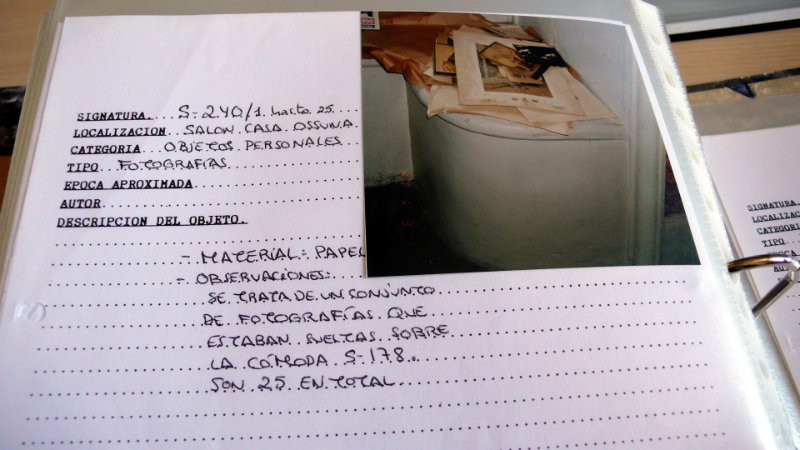 SIGNATURA. S-240/1 hasta 25
LOCALIZACION SALON CASA OSSUNA
CATEGORIA OBJETOS PERSONALES
TIPO FOTOGRAFÍAS
EPOCA APROXIMADA
AUTOR
DESCRIPCION DEL OBJETO.
- MATERIAL: PAPEL
- OBSERVACIONES:
SE TRATA DE UN CONJUNTO
DE FOTOGRAFÍAS QUE
ESTABAN SUELTAS SOBRE
LA CÓMODA S-178.
SON 25 EN TOTAL
SIGNATURA
LOCALIZAC
CATEGORI
TIPO
EPOCA A